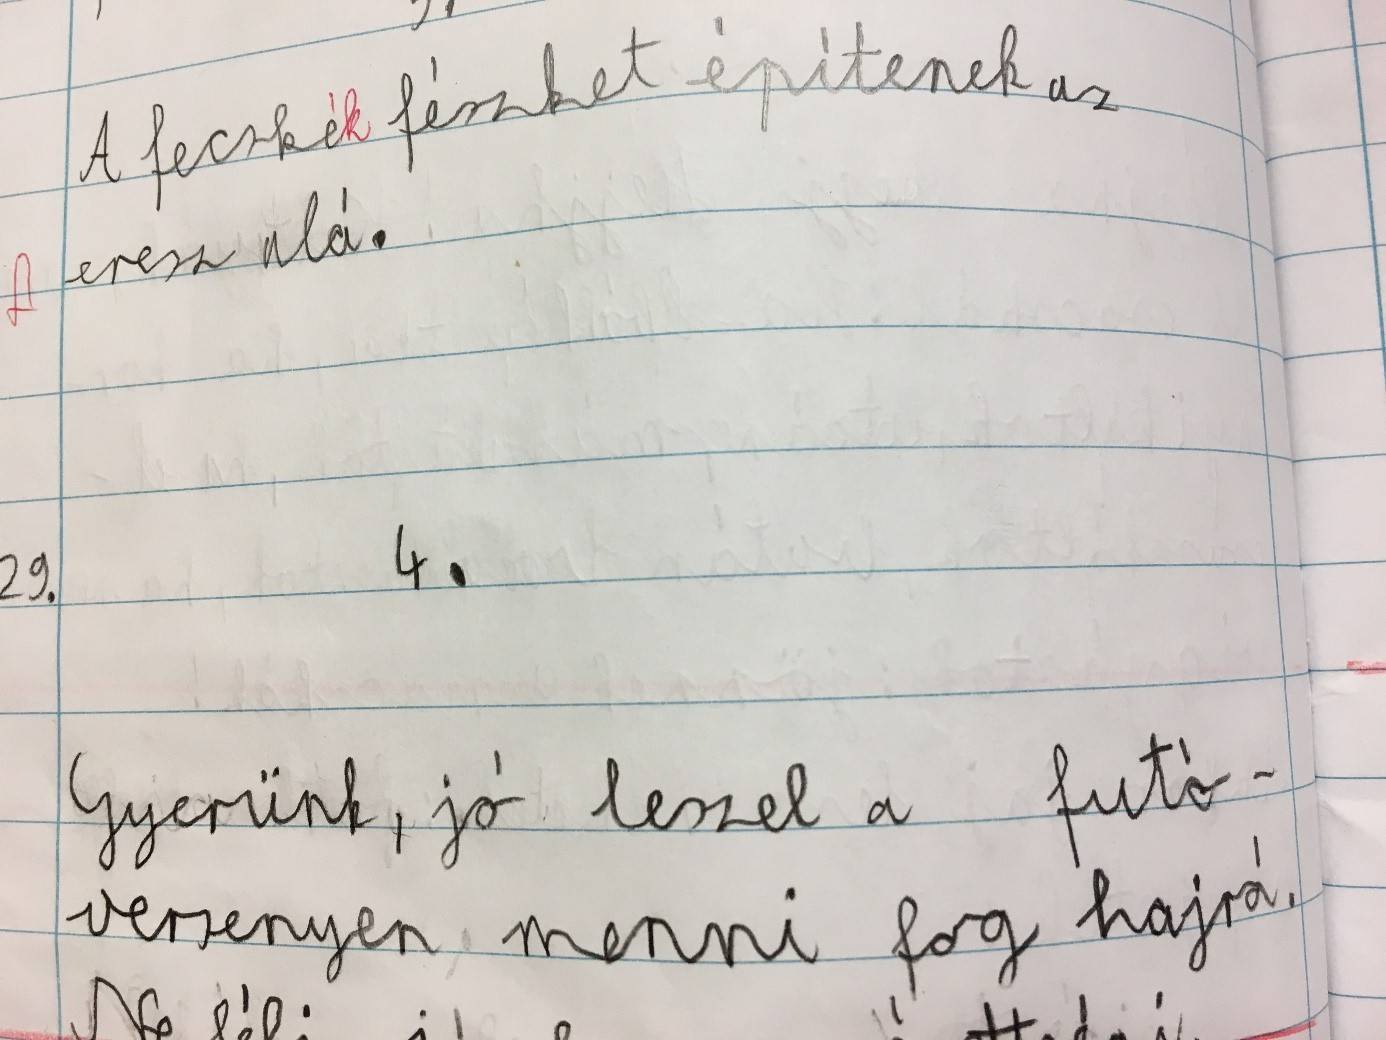 A fecskék fészket építenek az
eresz alá.
29.
4.
Gyerünk, jó leszel a futó-
versenyen menni fog hajrá.
Ne félj